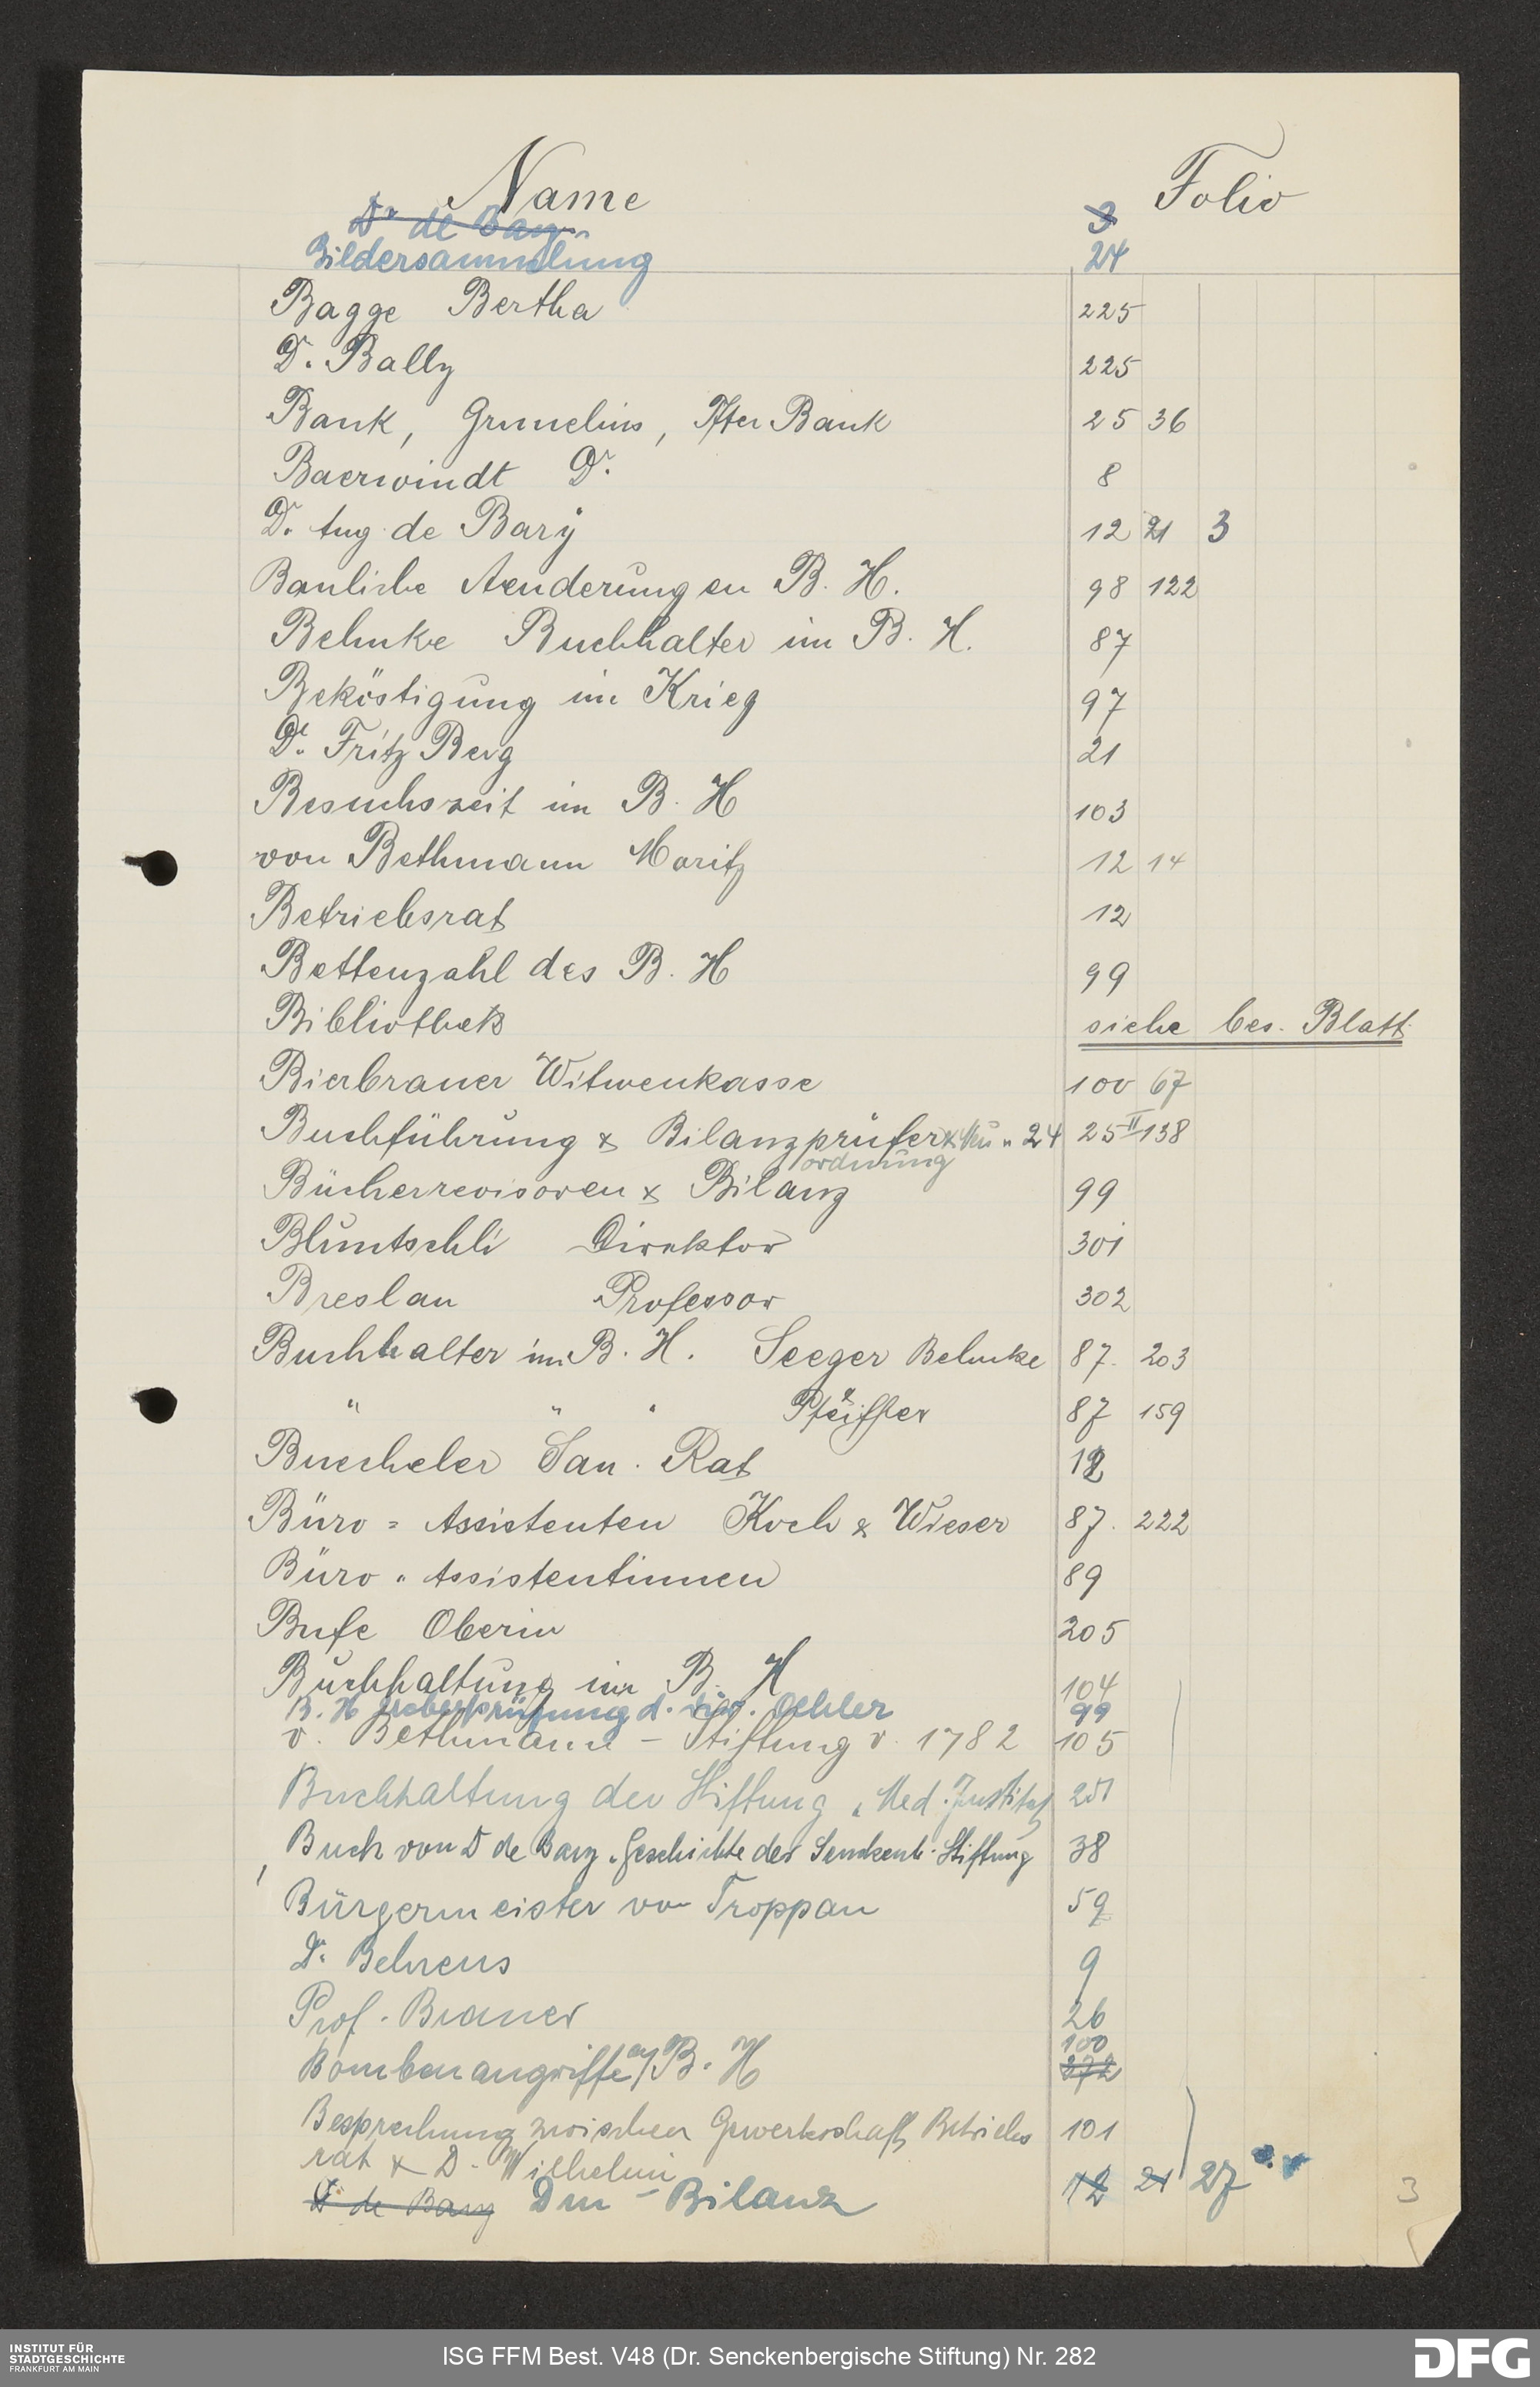 Name Folio
Dr de Bary 3
Bildersammlung 24
Bagge Bertha 225
Dr. Bally 225
Bank, Grunelius, Ffter Bank 25 36
Baerwindt Dr. 8
Dr. Aug. de Bary 12 21 3
Bauliche Aenderungen B. H. 98 122
Behnke Buchhalter im B. H. 87
Beköstigung im Krieg 97
Dr. Fritz Berg 21
Besuchszeit im B. H 103
von Bethmann Moritz 12 14
Betriebsrat 12
Bettenzahl des B. H 99
Bibliothek siehe bes. Blatt
Bierbrauer Witwenkasse 100 67
Buchführung & Bilanzprüfer & Neu " 24 25 II 138
ordnung
Bücherrevisoren & Bilanz 99
Bluntschli Direktor 301
Breslau Professor 302
Buchhalter im B. H. Seeger Behnke 87. 203
" " " Pfeiffer 87 159
Buecheler San. Rat 12
Büro = Assistenten Koch & Wieser 87. 222
Büro " Assistentinnen 89
Bufe Oberin 205
Buchhaltung im B. H 104
B. H Ueberprüfung d. Oehler 99
v. Bethmann - Stiftung v. 1782 105
Buchhaltung der Stiftung " Med. Institut 251
Buch von D de Bary "Geschichte der Senckenb. Stiftung 38
Bürgermeister von Troppau 59
Dr. Behrens 9
Prof. Brauer 26
100
Bombenangriffe a/ B. H 272
Besprechung zwischen Gewerkschaft, Betriebs 101
rat & D. Wilhelmi
D de Bary Dm - Bilanz 12 21 27
3
INSTITUT FÜR
STADTGESCHICHTE
FRANKFURT AM MAIN
ISG FFM Best. V48 (Dr. Senckenbergische Stiftung) Nr. 282
DFG